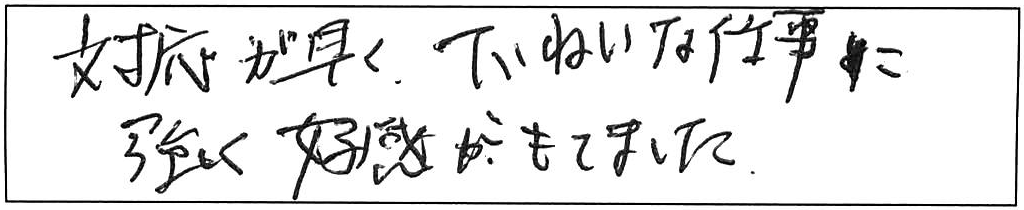 対応が早く、ていねいな仕事に
強く好感がもてました。